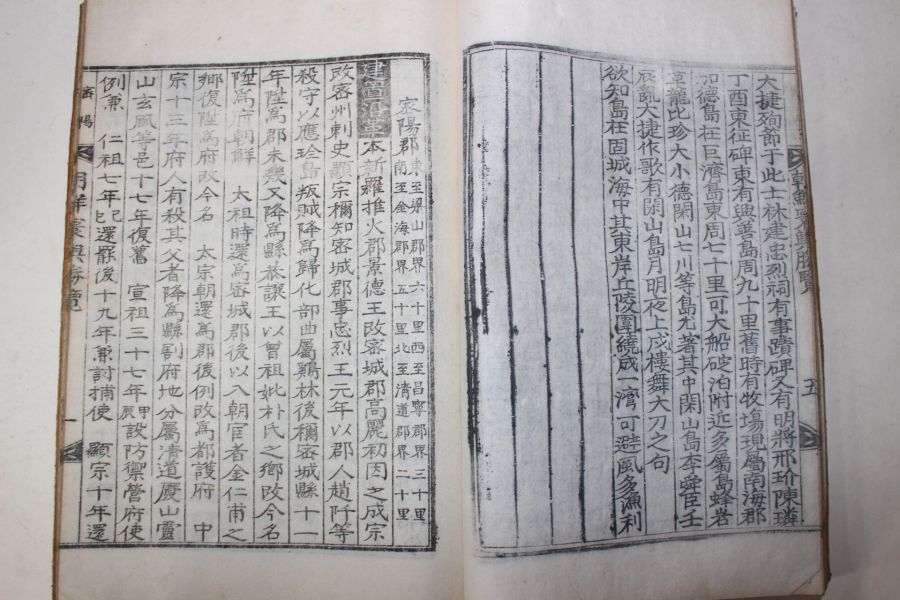 大捷殉節于此士林建忠烈祠有事蹟碑又有明將邢玠陳璘
丁酉東征碑東有與善島周九十里舊時有牧場現屬南海郡
加德島在巨濟島東周七十里可大船碇泊附近多屬島蜂岩
草龍比珍大小德閑山七川等島尤著其中閑山島李舜臣壬
辰亂大捷作歌有閑山島月明夜上戍樓舞大刀之句
欲知島在固城海中其東岸丘陵圍繞成一湾可避風多漁利
五
密陽郡東至梁山郡界六十里西至昌寧郡界三十里
南至金海郡界五十里北至清道郡界二十里
建置沿革本新羅推火郡景德王改密城郡高麗初因之成宗
改密州刺史顯宗稱知密城郡事忠烈王元年以郡人趙阡等
殺守以應珍島叛賊降爲歸化部曲屬鷄林後稱密城縣十一
年陞爲郡未幾又降爲縣恭讓王以曾祖妣朴氏之鄉改今名
陞爲府朝鮮 太祖時還爲密城郡後以入朝宦者金仁甫之
鄉復陞爲府改今名 太宗朝還爲郡後例改爲都護府 中
宗十三年府人有殺其父者降爲縣割府地分屬清道慶山靈
山玄風等邑十七年復舊 宣祖三十七年甲辰設防禦營府使
例兼 仁祖七年己巳還罷後十九年兼討捕使 顯宗十年還
密陽
一